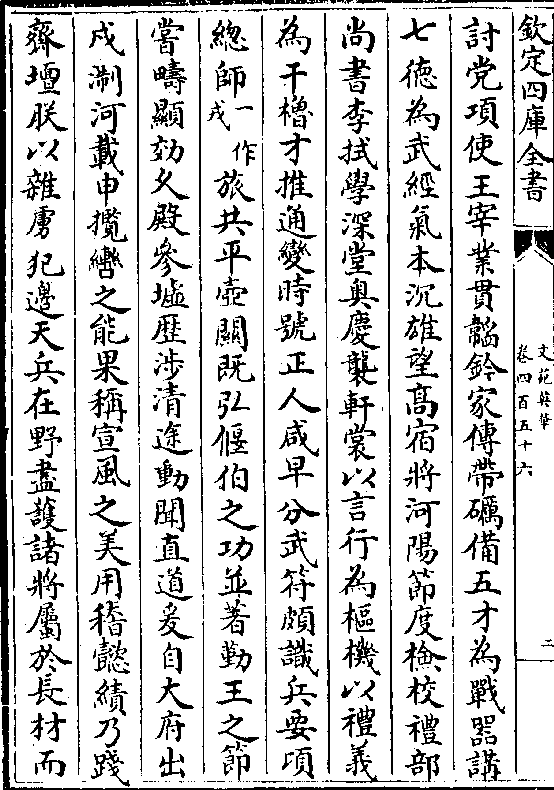 欽定四庫全書
文苑英華
卷四百五十六
二
討党項使王宰業貫韜鈐家傳帶礪備五才為戰器講
七德為武經氣本沉雄望高宿將河陽節度檢校禮部
尚書李拭學深堂奥慶襲軒裳以言行為樞機以禮義
為干櫓才推通變時號正人咸早分武符頗識兵要項
總師一作戎旅共平壺關既弘偃伯之功並著勤王之節
嘗疇顯効乆殿參墟歴涉清途動聞直道爰自大府出
戍淛河載申攬轡之能果稱宣風之美用稽懿績乃踐
齊壇朕以雜虜犯邊天兵在野盡護諸將屬於長材而